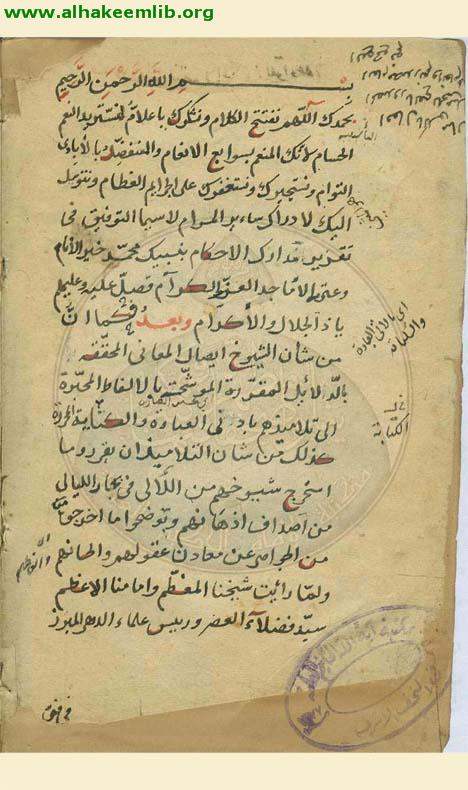 www.alhakeemlib.org
بسم الله الرحمن الرحيم
بحمدك اللهم نفتتح الكلام وبشكرك باعلام نستزيد النعم
الجسام لانك المنعم بسوابغ الانعام والمتفضل بالايادي
التوام ونستجيرك ونستغفرك على الجرايم العظام ونتوسل
اليك لادراك ساير المرام لاسيما التوفيق في
تقرير مدارك الاحكام بنبيك محمد خير الأنام
وعترته الاماجد الغر الكرام فصل عليه وعليهم
يا ذا الجلال والاكرام وبعد فكما ان
من شان الشيوخ ايصال المعاني المحققه
بالدلائل المقررة الموشحة بالالفاظ المحبرة
الى تلاميذهم بادنى العبارة والكتابة المحررة
كذلك من شان التلاميذ ان يقرروا ما
استخرج شيوخهم من اللآلي في بحار الليالي
من اصداف اذهانهم ويوضحوا ما اخرجوا
من الجواهر عن معادن عقولهم والحانهم
ولما رايت شيخنا المعظم وامامنا الاعظم
سيد فضلاء العصر ورييس علماء الدهر المبرز
اي بالالفاظ
الكتابة